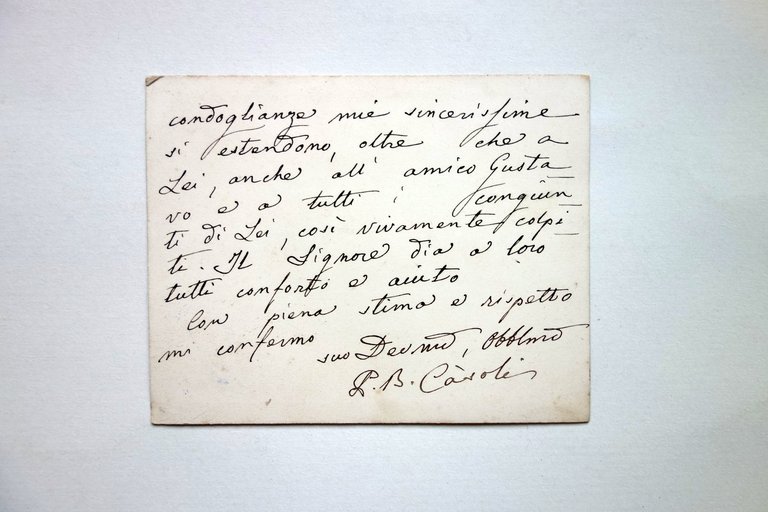 condoglianze mie sincerissime
si estendono, oltre che a
Lei, anche all' amico Gusta
vo e a tutti i congiun
ti di Lei, così vivamente colpi
ti. Il Signore dia a loro
tutti conforto e aiuto
Con piena stima e rispetto
mi confermo
suo Devmo, Obblmo
P. B. Càsoli